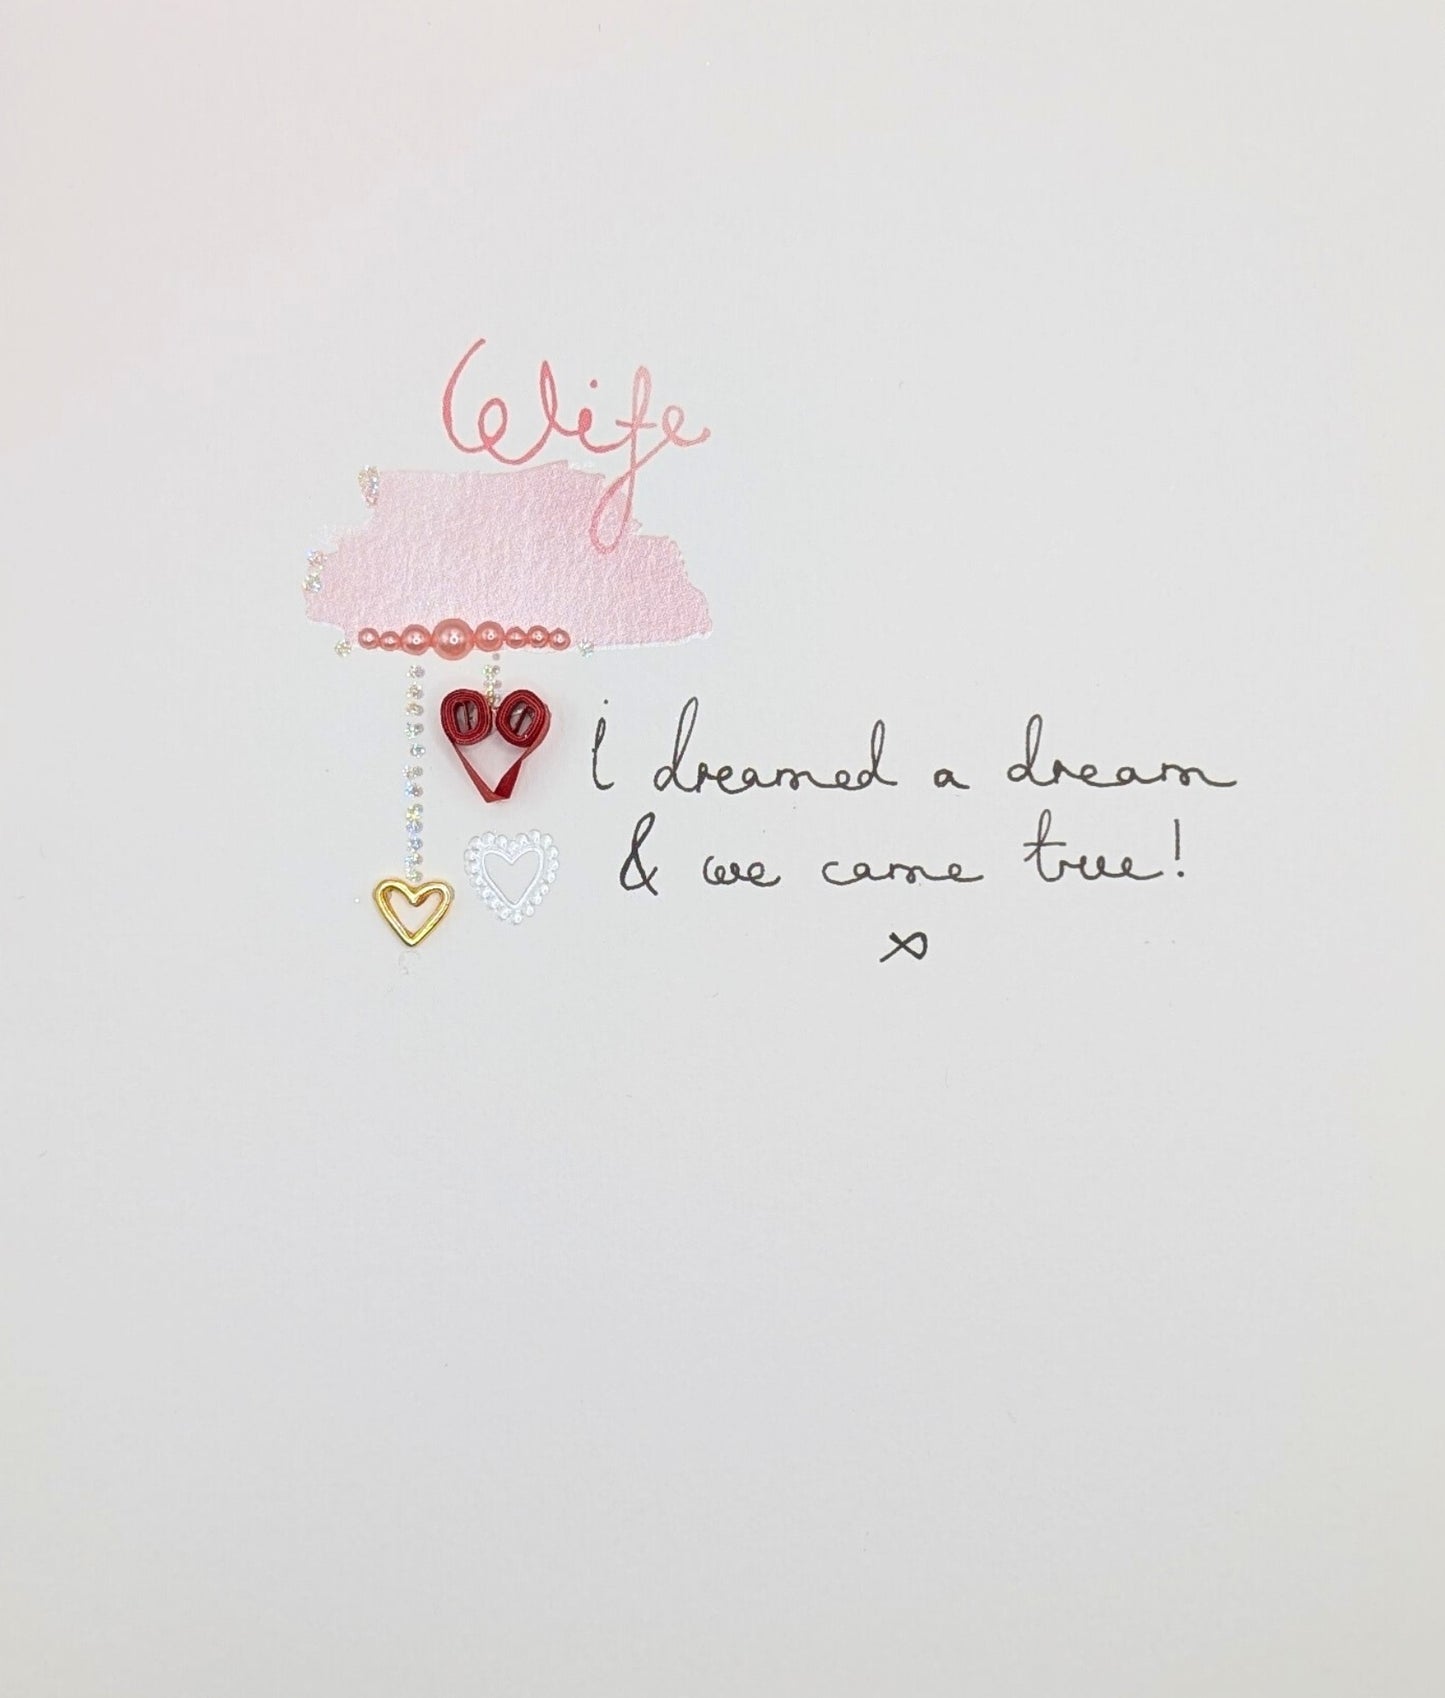 Wife
i dreamed a dream
& we came true!
x